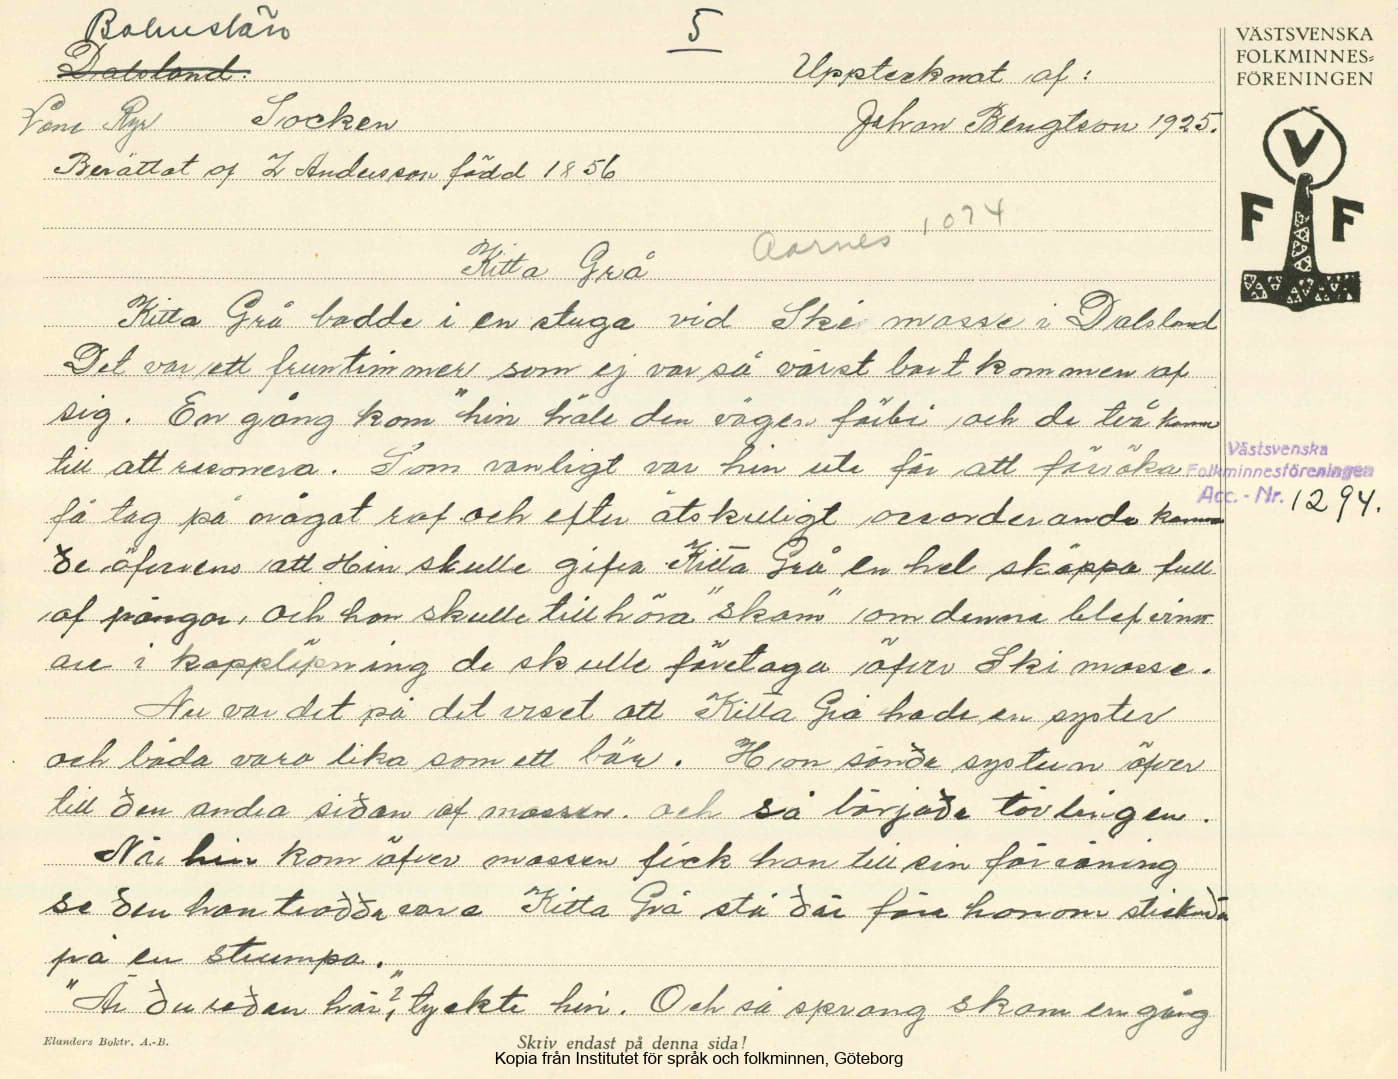 Bohuslän
5
Dalsland.
Upptecknat af:
VÄSTSVENSKA
FOLKMINNES-
FÖRENINGEN
Vane Ryr Socken
Johan Bengtson 1925.
Berättat af Z Andersson född 1856
V
F F
Aarnes 1074
Kitta Grå
Kitta Grå bodde i en stuga vid Ske mosse i Dalsland
Det var ett fruntimmer som ej var så värst bortkommen af
sig. En gång kom "hin håle den vägen förbi och de två komm
till att resonera. Som vanligt var hin ute för att försöka
få tag på något raf och efter åtskilligt ackorderande komm
de öfverens att Hin skulle gifva Kitta Grå en hel skäppa full
af pängar, och hon skulle tillhöra "skam" om denne blef vinn
are i kapplöpning de skulle företaga öfver Ski mosse.
Nu var det på det viset att Kitta Grå hade en syster
och båda vara lika som ett bär. Hon sände systern öfver
till den andra sidan af mossen. och så började töflingen.
När hin kom öfver mossen fick han till sin förvåning
se den han trodde vara Kitta Grå stå där före honom stickade
på en strumpa.
"Är du redan här"?, tyckte hin. Och så sprang skam en gång
Västsvenska
Folkminnesföreningen
Acc. - Nr. 1294.
Elanders Boktr. A.-B.
Skriv endast på denna sida!
Kopia från Institutet för språk och folkminnen, Göteborg